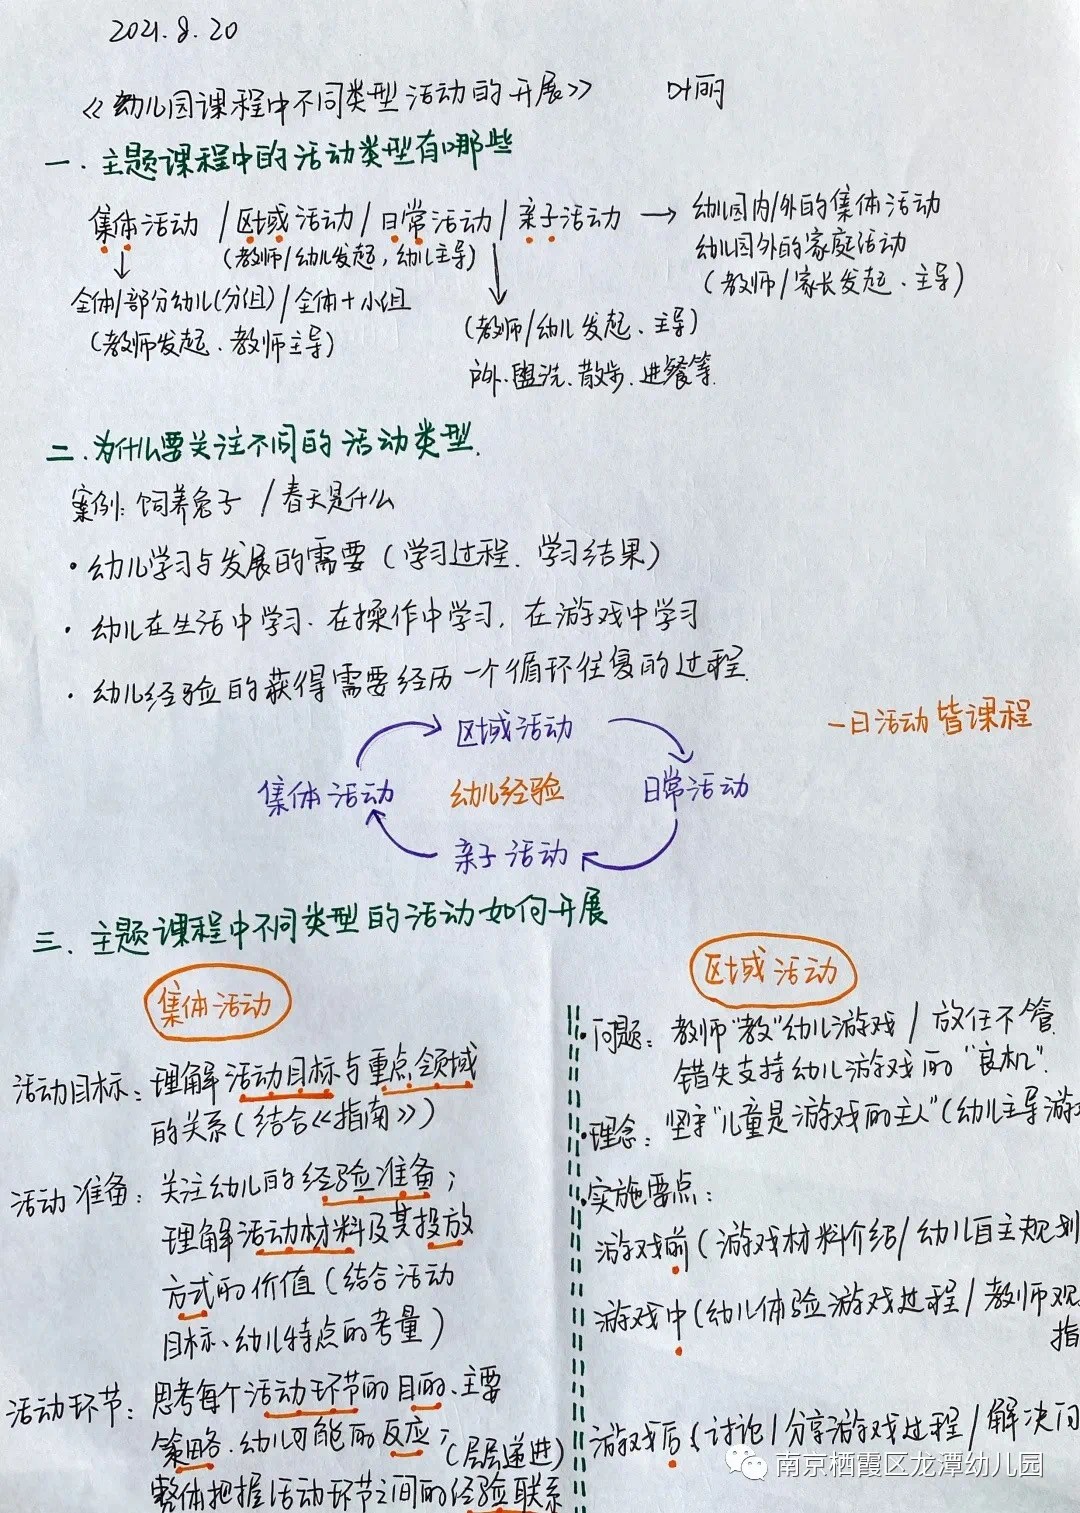 2021.8.20
《幼儿园课程中不同类型活动的开展》 叶丽
一.主题课程中的活动类型有哪些
集体活动 /区域活动/日常活动/亲子活动 → 幼儿园内/外的集体活动
(教师/幼儿发起,幼儿主导) 幼儿园外的家庭活动
(教师/家长发起、主导)
全体/部分幼儿(分组)/全体+小组
(教师发起、教师主导)
(教师/幼儿发起、主导)
户外、盥洗、散步、进餐等.
二.为什么要关注不同的活动类型.
案例:饲养兔子 /春天是什么
·幼儿学习与发展的需要(学习过程、学习结果)
·幼儿在生活中学习、在操作中学习,在游戏中学习
·幼儿经验的获得需要经历一个循环往复的过程.
一日活动皆课程
区域活动
集体活动 幼儿经验 日常活动
亲子活动
三.主题课程中不同类型的活动如何开展
集体活动
活动目标:理解活动目标与重点领域
的关系(结合《指南》)
活动准备:关注幼儿的经验准备;
理解活动材料及其投放
方式的价值(结合活动
目标、幼儿特点的考量)
活动环节:思考每个活动环节的目的、主要
策略、幼儿可能的反应;(层层递进)
整体把握活动环节之间的经验联系
区域活动
·问题:教师"教"幼儿游戏/放任不管.
错失支持幼儿游戏的"良机".
·理念:坚守"儿童是游戏的主人"(幼儿主导游戏
·实施要点:
游戏前(游戏材料介绍/幼儿自主规划
游戏中(幼儿体验游戏过程/教师观
指
游戏后(讨论/分享游戏过程/解决问
南京栖霞区龙潭幼儿园